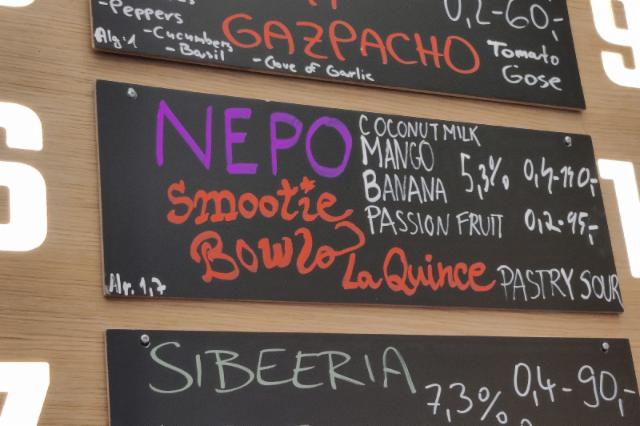 - Peppers
0,2-60,-
Alg:1
- Cucumbers
- Basil
- Cove of Garlic
GAZPACHO
Tomato
Gose
NEPO
Smootie
Bowls
COCONUT MILK
MANGO
BANANA
PASSION FRUIT
5,3%
0,4-170,-
0,2-95,-
La Quince
PASTRY SOUR
Alr. 1,7
SIBEERIA
7,3%
0,4-90,-
6
7